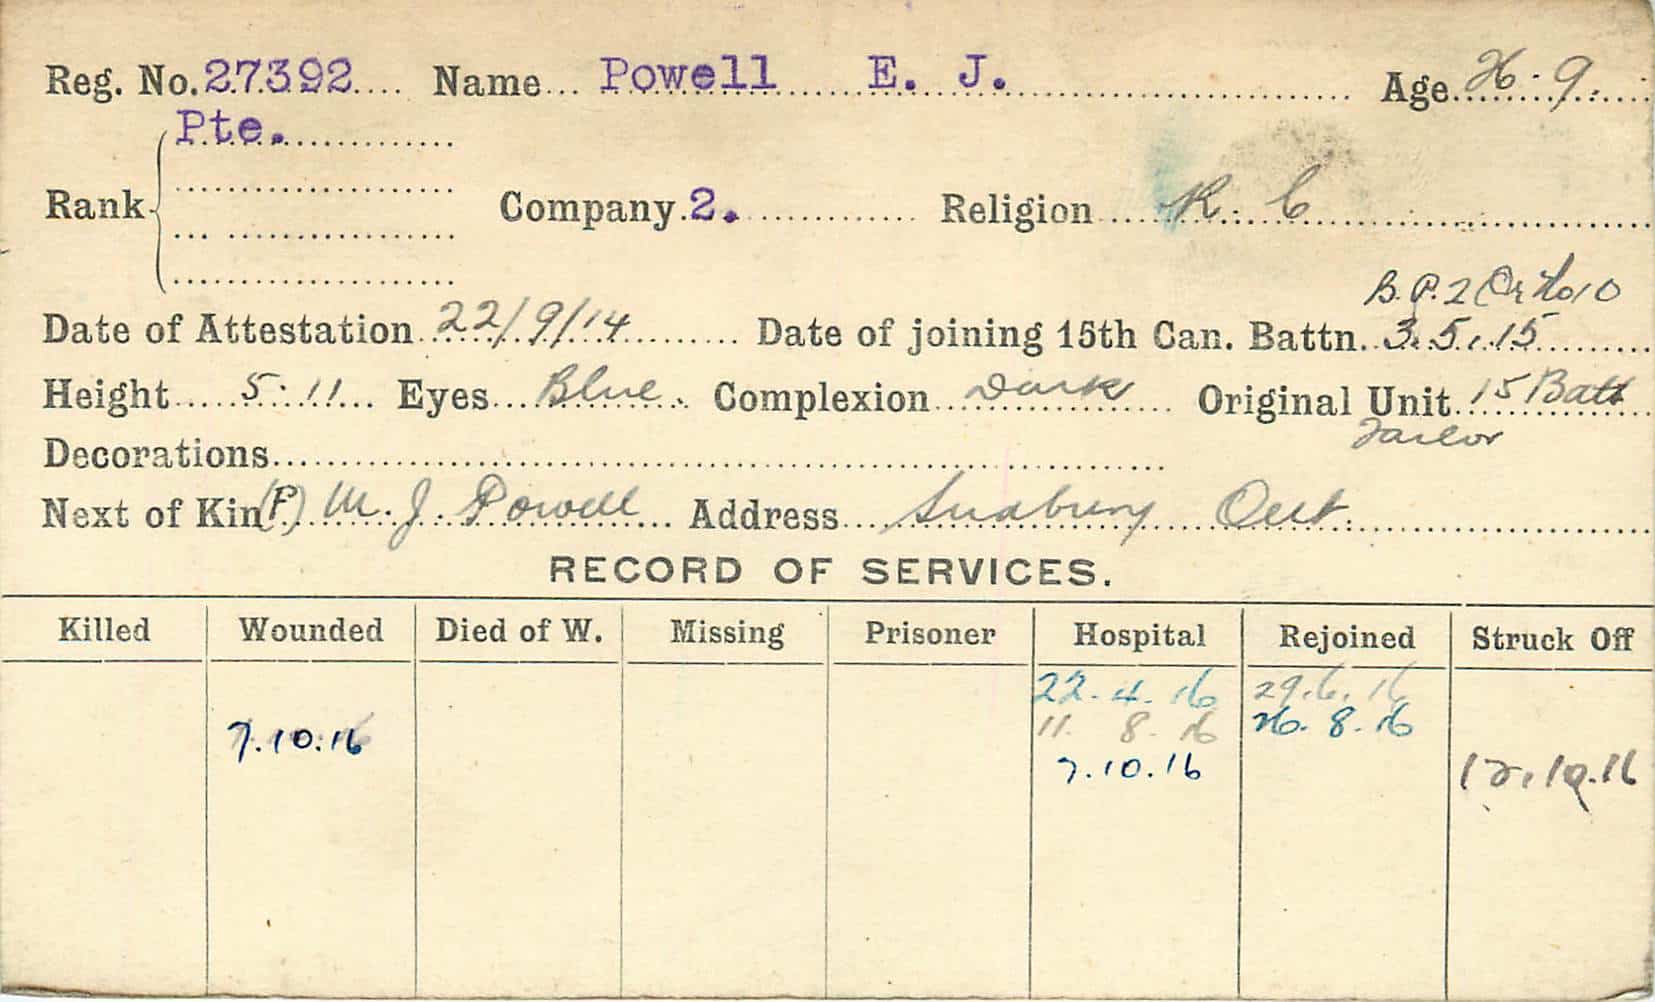 Reg. No. 27392 Name Powell E. J. Age 26.9.
Pte.
Rank Company 2. Religion R. C
B.P.2 Or No 10
Date of Attestation 22/9/14 Date of joining 15th Can. Battn. 3.5.15
Height 5.11 Eyes Blue. Complexion Dark Original Unit 15 Batt
Tailor
Decorations
Next of Kin (F) M. J. Powell Address Sudbury Ont.
RECORD OF SERVICES.
Killed Wounded Died of W. Missing Prisoner Hospital Rejoined Struck Off
22.4.16 29.6.16
7.10.16 11. 8. 16 26.8.16
7.10.16 12.10.16